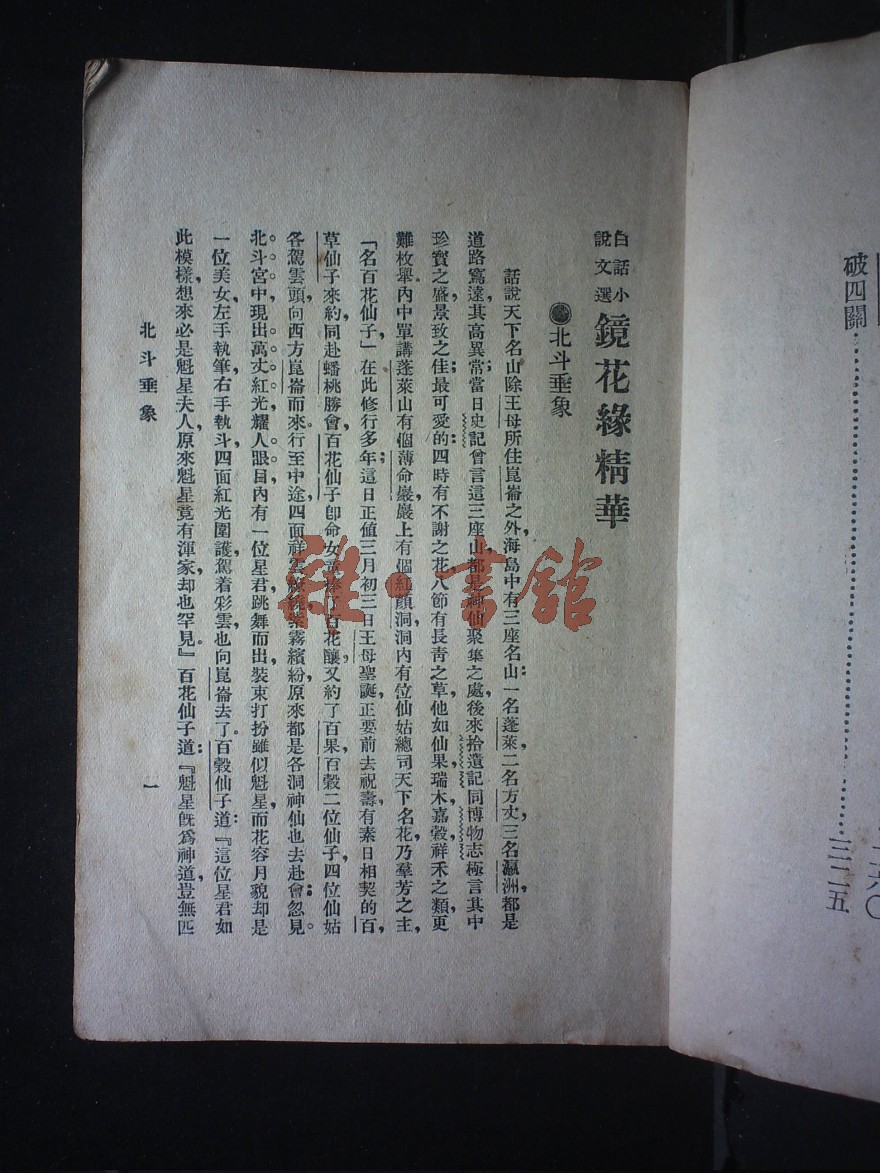 破四關⋯⋯⋯⋯⋯⋯三二五
白話小
說文選
鏡花緣精華
北斗垂象
話說天下名山除王母所住崑崙之外,海島中有三座名山:一名蓬萊,二名方丈,三名瀛洲,都是
道路窵遠,其高異常。當日史記曾言這三座山都是神仙聚集之處,後來拾遺記同博物志極言其中
珍寶之盛,景致之佳;最可愛的:四時有不謝之花,八節有長靑之草,他如仙果瑞木嘉穀祥禾之類,更
難枚舉。內中單講蓬萊山有個薄命巖,巖上有個紅顏洞,洞內有位仙姑,總司天下名花,乃羣芳之主,
「名百花仙子」在此修行多年;這日正値三月初三日王母聖誕,正要前去祝壽,有素日相契的百
草仙子來約同赴蟠桃勝會,百花仙子卽命女童捧了百花釀,又約了百果百穀二位仙子,四位仙姑
各駕雲頭,向西方崑崙而來。行至中途,四面祥雲繚繞,紫霧繽紛,原來都是各洞神仙也去赴會;忽見
北斗宮中現出萬丈紅光,耀人眼目,內有一位星君,跳舞而出,裝束打扮雖似魁星,而花容月貌却是
一位美女,左手執筆,右手執斗,四面紅光圍護,駕着彩雲,也向崑崙去了。百穀仙子道:『這位星君如
此模樣,想來必是魁星夫人,原來魁星竟有渾家,却也罕見。』百花仙子道:『魁星旣爲神道,豈無匹
北斗垂象
一
雜·書館